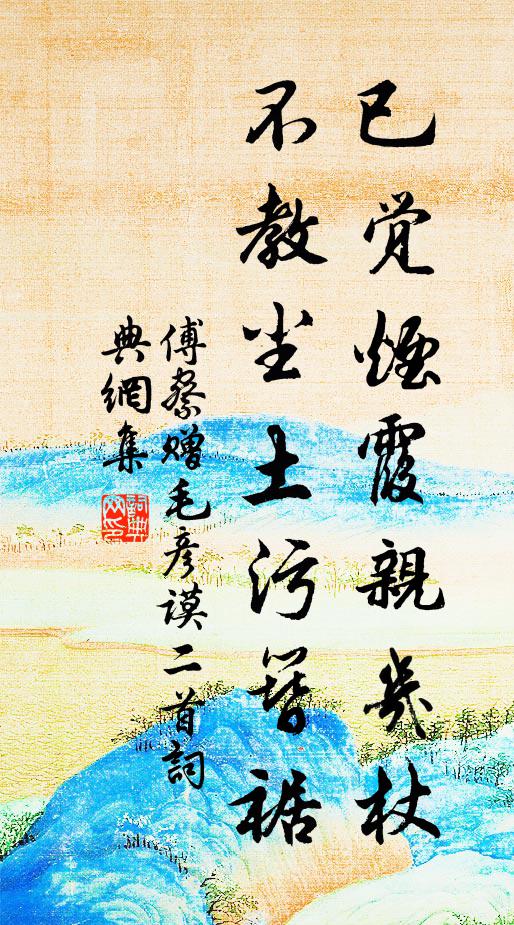 已觉煙霞親几杖
不教尘土污簪裾
傅察赠毛彦谟二首詞
典網集
詞典